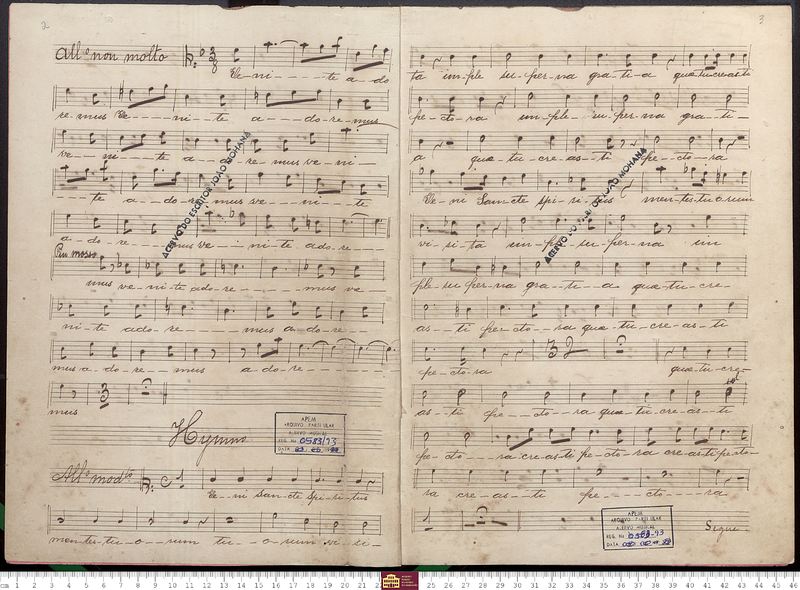 2
All.º non molto
Ve-ni----te a-do
re-mus Ve--ni-te a-do-re-mus
ve--ni--te a-do-re-mus ve-ni
--te a-do-re---mus ve--ni--te
a-do-re----mus ve--ni-te ado-re---
Piu mosso
mus ve-ni-te ado-re----mus ve-
ni-te ado-re----mus a-do-re---
mus a-do-re--mus a-do-re----
mus
3 2
Hymno
All.º mod.to
Ve-ni San-cte Spi-ri-tus
men-tes-tu-o-rum tu--o-rum vi-si
APEM
ARQUIVO PARTICULAR
ACERVO MUSICAL
REG. No 0583/93
DATA
ACERVO DO ESCRITOR JOÃO MOHANA
3
ta im-ple su-per-na gra-ti-a quæ-tu-cre-as-ti
pe-cto-ra im-ple su-per-na gra--ti-
a quæ-tu-cre-as-ti pe-cto-ra
Ve-ni San-cte Spi-ri-tus men-tes-tu-o-rum
vi-si-ta im-ple su-per-na im
ple-su-per-na gra-ti--a quæ-tu-cre-
as--ti pe-cto--ra quæ-tu-cre-as-ti
pe-cto-ra 32 2 quæ-tu-cre-
as-ti pe--cto--ra quæ-tu-cre-as-ti
pe-cto---ra cre-as-ti pe-cto-ra cre-as-ti pe-cto-
ra cre-as--ti pe---cto---ra
2 Segue
APEM
ARQUIVO PARTICULAR
ACERVO MUSICAL
REG. No 0583/93
DATA
ACERVO DO ESCRITOR JOÃO MOHANA
cm 1 2 3 4 5 6 7 8 9 10 11 12 13 14 15 16 17 18 19 20 21 22 25 26 27 28 29 30 31 32 33 34 35 36 37 38 39 40 41 42 43 44 45 46